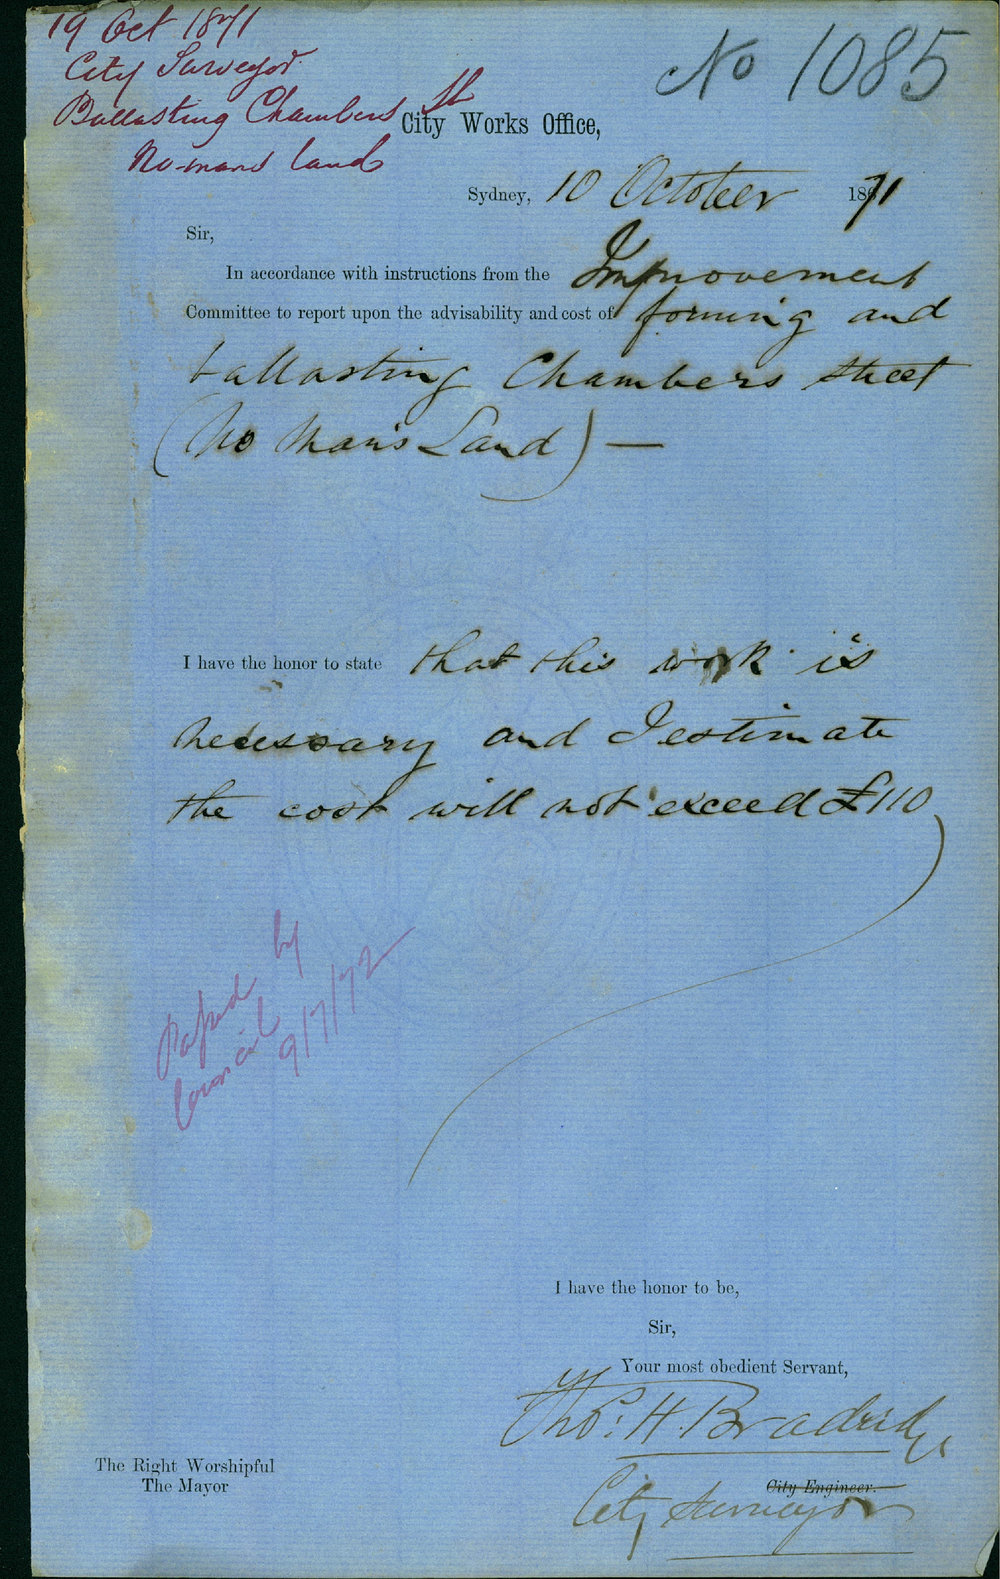 19 Oct 1871
City Surveyor
Ballasting Chambers St
No-mans land
No 1085
City Works Office,
Sydney, 10 October 1871
Sir,
In accordance with instructions from the Improvement
Committee to report upon the advisability and cost of forming and
ballasting Chambers street
(No Man's Land) —
I have the honor to state that this work is
necessary and I estimate
the cost will not exceed £110
Passed by
Council
9/7/72
I have the honor to be,
Sir,
Your most obedient Servant,
Thos. H. Bradridge
City Engineer.
City Surveyor
The Right Worshipful
The Mayor